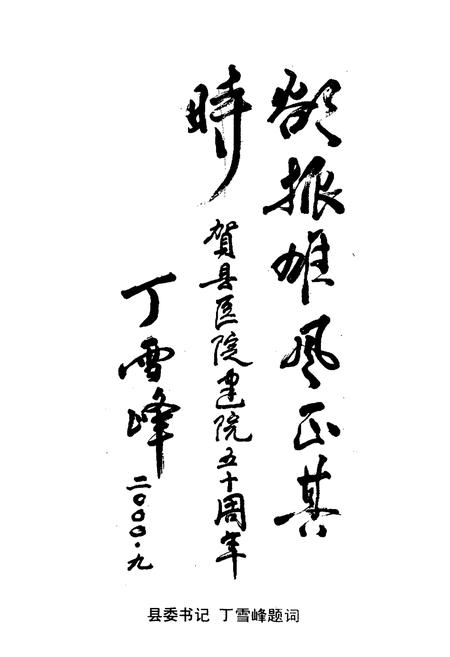 欲振雄风正其
时
贺县医院建院五十周年
丁雪峰
二〇〇〇·九
县委书记 丁雪峰题词